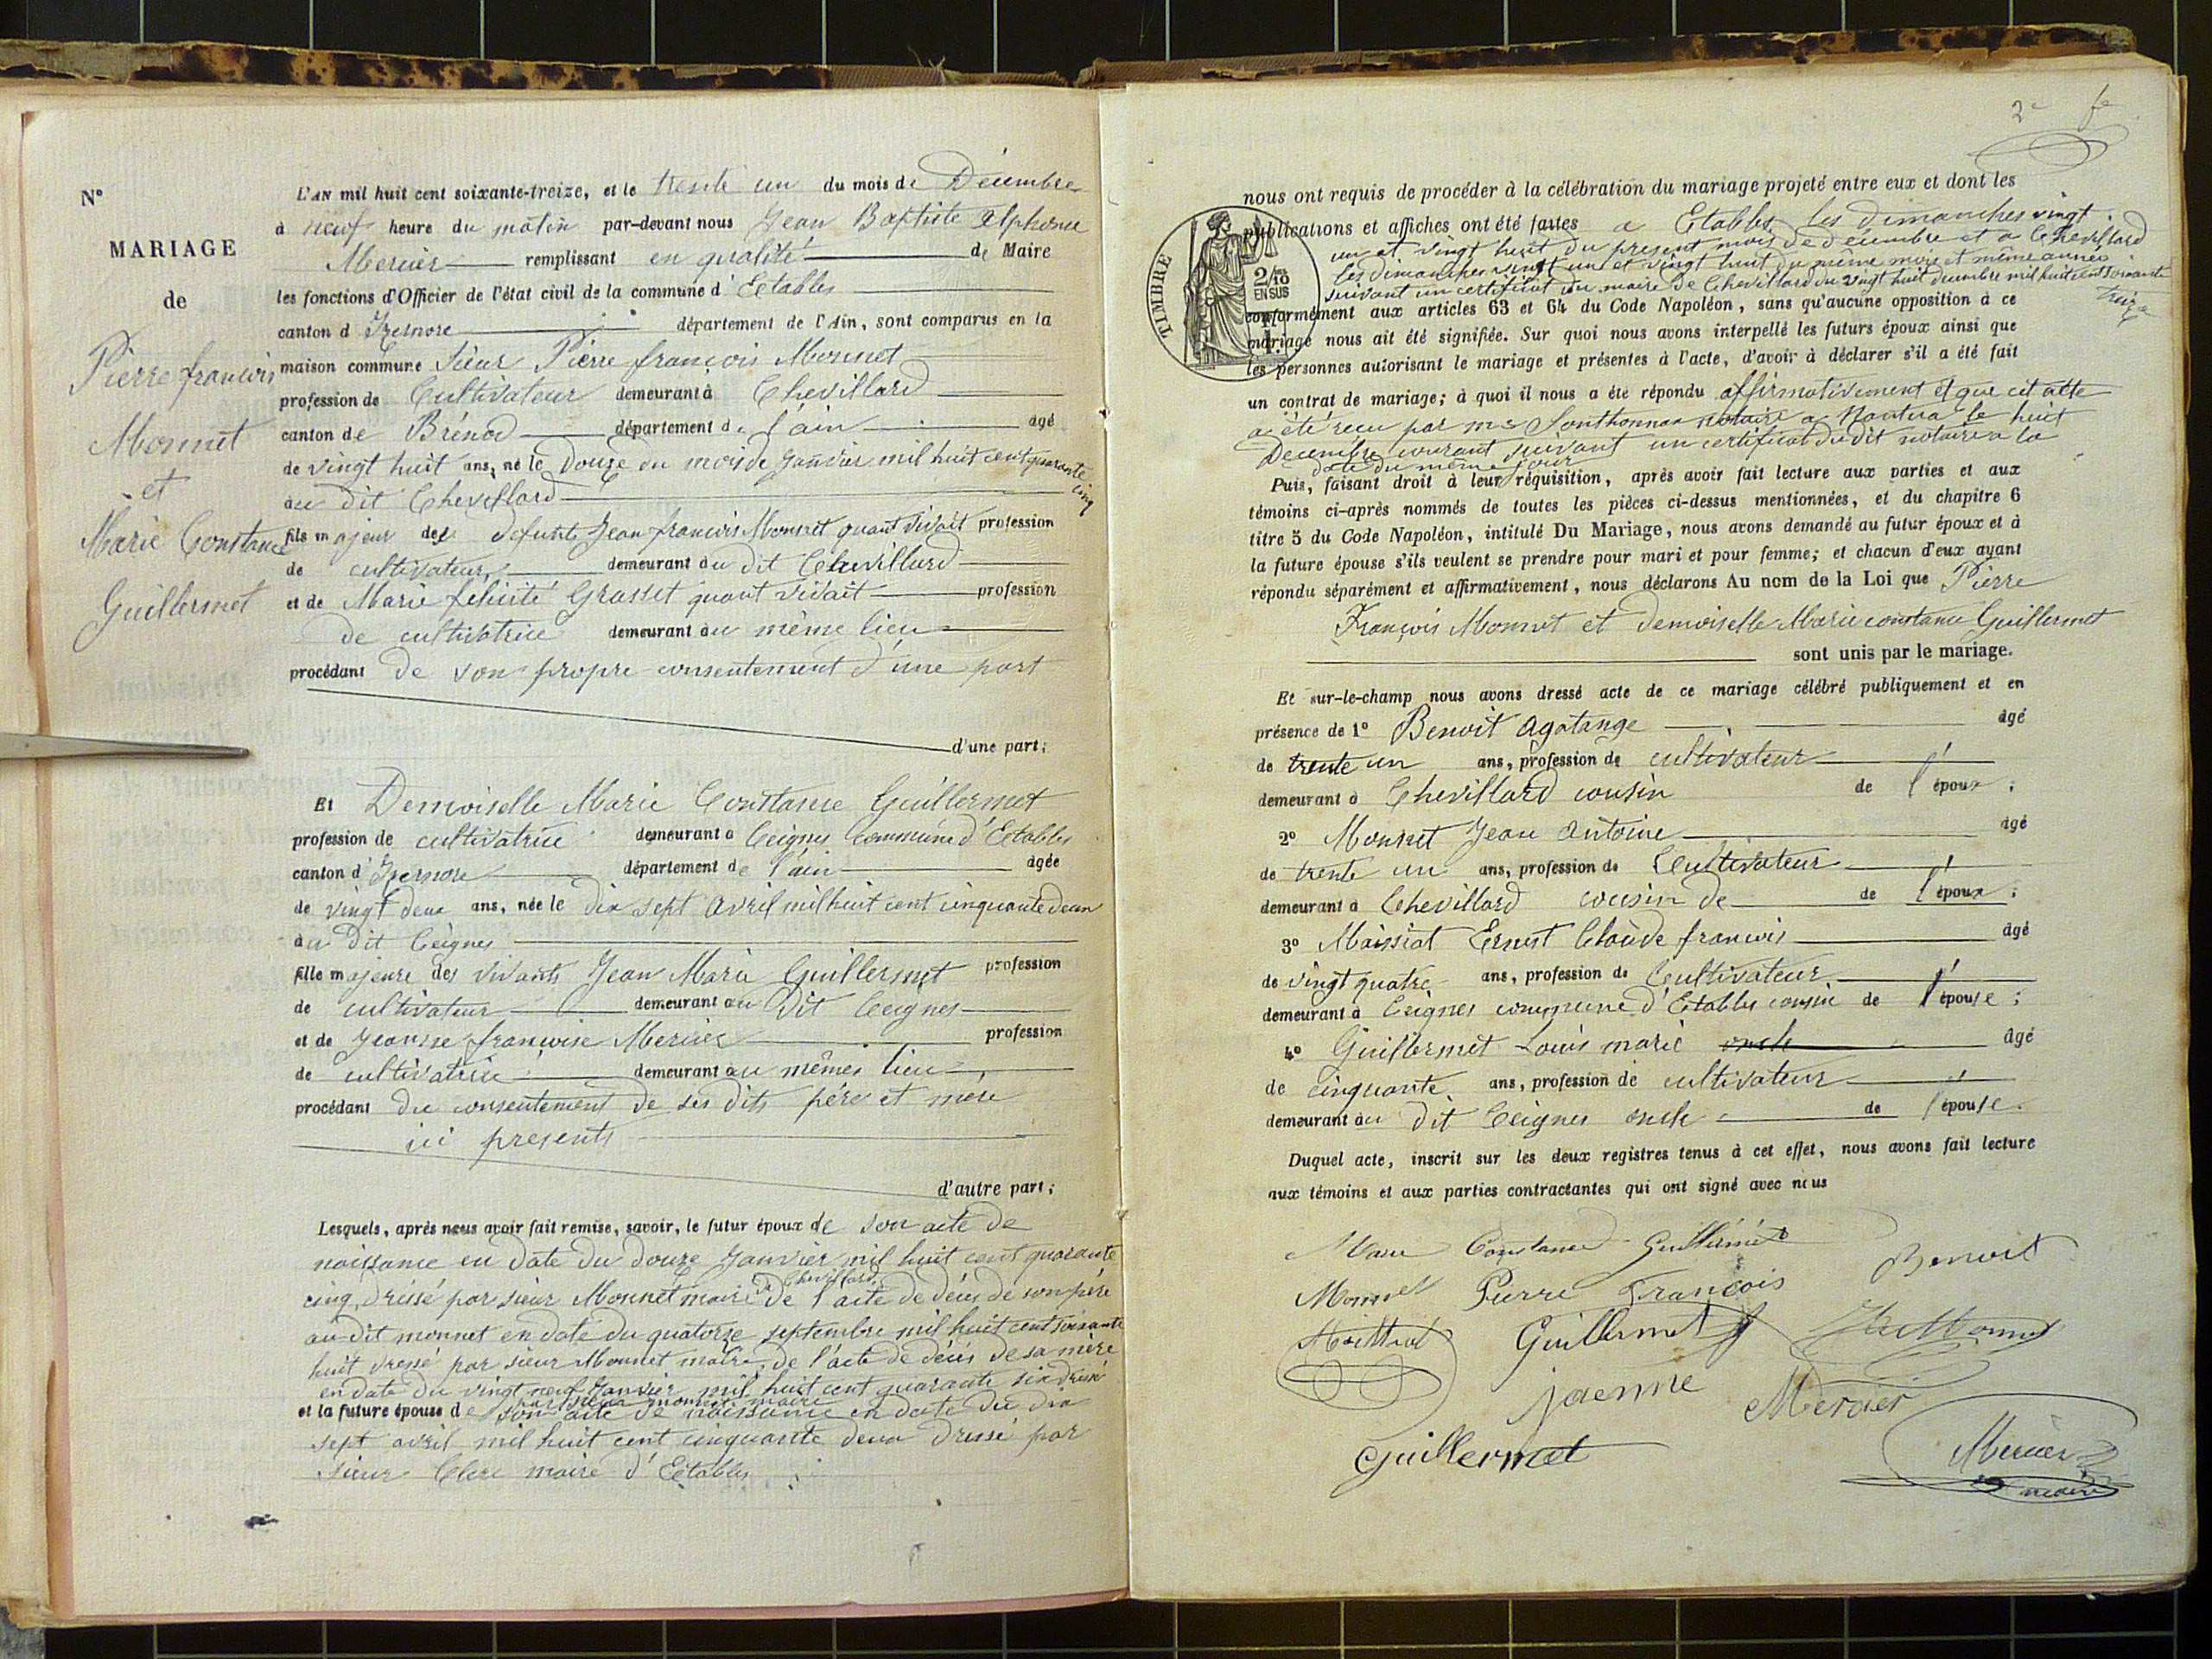 N°
MARIAGE
de
Pierre francois
Monnet
et
Marie Constance
Guillermet
L'AN mil huit cent soixante-treize, et le trente un du mois de Décembre
à neuf heure du matin par-devant nous Jean Baptiste Alphonse
Mercier remplissant en qualité de Maire
les fonctions d'Officier de l'état civil de la commune d'Etables
canton d'Izernore département de l'Ain, sont comparus en la
maison commune Sieur Pierre françois Monnet
profession de Cultivateur demeurant à Chevillard
canton de Brénod département de l'ain âgé
de vingt huit ans, né le Douze du mois de Janvier mil huit cent quarante cinq
au dit Chevillard
fils majeur des defunts Jean francois Monnet quant vivait profession
de cultivateur, demeurant au dit Chevillard
et de Marie félicité Grasset quant vivait profession
de cultivatrice demeurant au même lieu
procédant de son propre consentement d'une part
d'une part;
Et Demoiselle Marie Constance Guillermet
profession de cultivatrice demeurant à Ceignes Commune d'Etables
canton d'Izernore département de l'ain âgée
de vingt deux ans, née le dix sept Avril mil huit cent cinquante deux
au dit Ceignes
fille majeure des vivants Jean Marie Guillermet profession
de cultivateur demeurant au dit Ceignes
et de Jeanne françoise Mercier profession
de cultivatrice demeurant au mêmes lieu
procédant du consentement de ses dits père et mère
ici presents
d'autre part;
Lesquels, après nous avoir fait remise, savoir, le futur époux de son acte de
naissance en date du douze Janvier mil huit cent quarante
cinq, dressé par sieur Monnet maire de Chevillard de l'acte de décès de son père
au dit monnet en date du quatorze septembre mil huit cent soixante
huit dressé par sieur Monnet maire, de l'acte de décès de sa mère
en date du vingt neuf Janvier mil huit cent quarante six dressé
par sieur monnet maire
et la future épouse de son acte de naissance en date du dix
sept avril mil huit cent cinquante deux dressé par
sieur Clerc maire d'Etables
2e fe
nous ont requis de procéder à la célébration du mariage projeté entre eux et dont les
publications et affiches ont été faites a Etables les dimanches vingt
un et vingt huit du present mois de décembre et a Chevillard
les dimanches vingt un et vingt huit du même mois et même année
suivant un certificat du maire de Chevillard du vingt huit decembre mil huit cent soixante treize
TIMBRE
2/10
EN SUS
conformément aux articles 63 et 64 du Code Napoléon, sans qu'aucune opposition à ce
mariage nous ait été signifiée. Sur quoi nous avons interpellé les futurs époux ainsi que
les personnes autorisant le mariage et présentes à l'acte, d'avoir à déclarer s'il a été fait
un contrat de mariage; à quoi il nous a été répondu affirmativement et que cet acte
a été reçu par me Southonnax notaire a Nantua le huit
Décembre courant suivant un certificat du dit notaire a la
date du même jour
Puis, faisant droit à leur réquisition, après avoir fait lecture aux parties et aux
témoins ci-après nommés de toutes les pièces ci-dessus mentionnées, et du chapitre 6
titre 5 du Code Napoléon, intitulé Du Mariage, nous avons demandé au futur époux et à
la future épouse s'ils veulent se prendre pour mari et pour femme; et chacun d'eux ayant
répondu séparément et affirmativement, nous déclarons Au nom de la Loi que Pierre
François Monnet et Demoiselle Marie constance Guillermet
sont unis par le mariage.
Et sur-le-champ nous avons dressé acte de ce mariage célébré publiquement et en
présence de 1° Benoit Agatange âgé
de trente un ans, profession de cultivateur
demeurant à Chevillard cousin de l'époux;
2° Monnet Jean Antoine âgé
de trente un ans, profession de Cultivateur
demeurant à Chevillard cousin de de l'époux;
3° Maissiat Ernest Claude francois âgé
de vingt quatre ans, profession de Cultivateur
demeurant à Ceignes commune d'Etables cousin de l'épouse;
4° Guillermet Louis marie oncle âgé
de cinquante ans, profession de cultivateur
demeurant au dit Ceignes oncle de l'épouse.
Duquel acte, inscrit sur les deux registres tenus à cet effet, nous avons fait lecture
aux témoins et aux parties contractantes qui ont signé avec nous
Marie Constance Guillermet
Benoit
Monnet Pierre François
Maissiat Guillermet Monnet
jaenne Mercier
Guillermet
Mercier
maire